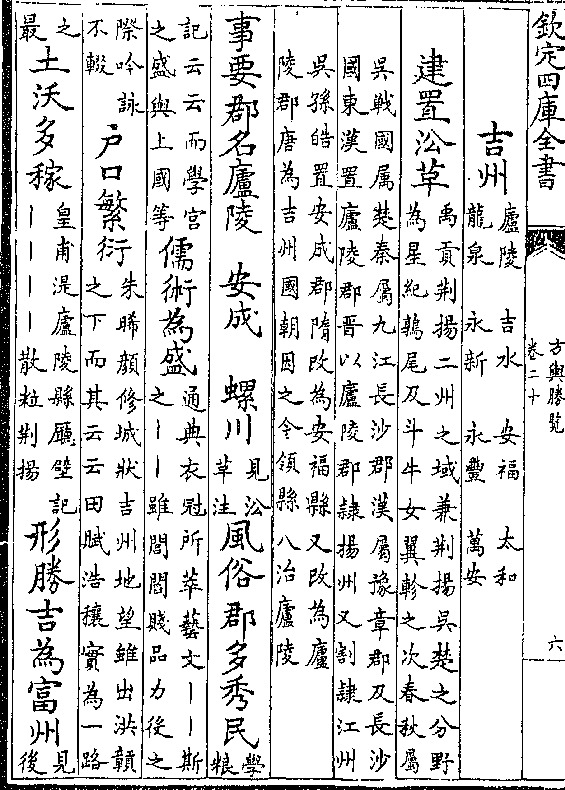 欽定四庫全書
方輿勝覽
卷二十
六
吉州
廬陵 吉水 安福 太和
龍泉 永新 永豐 萬安
建置㳂革
禹貢荆揚二州之域兼荆揚吳楚之分野
為星紀鶉尾及斗牛女翼軫之次春秋屬
吳戰國屬楚秦屬九江長沙郡漢屬豫章郡及長沙
國東漢置廬陵郡晋以廬陵郡隷揚州又割隷江州
吳孫皓置安成郡隋改為安福縣又改為廬
陵郡唐為吉州國朝因之今領縣八治廬陵
事要郡名廬陵 安成 螺川
見㳂
草注
風俗郡多秀民
學
粮
記云云而學宮
之盛與上國等
儒術為盛
通典衣冠所萃藝文丨丨斯
之丨丨雖閭閻賤品力後之
際吟詠
不輟
户口繁衍
朱晞顔修城狀吉州地望雖出洪贛
之下而其云云田賦浩穰實為一路
之
最
土沃多稼
皇甫湜廬陵縣廳壁記
丨丨丨丨散粒荆揚
形勝吉為富州
見
後